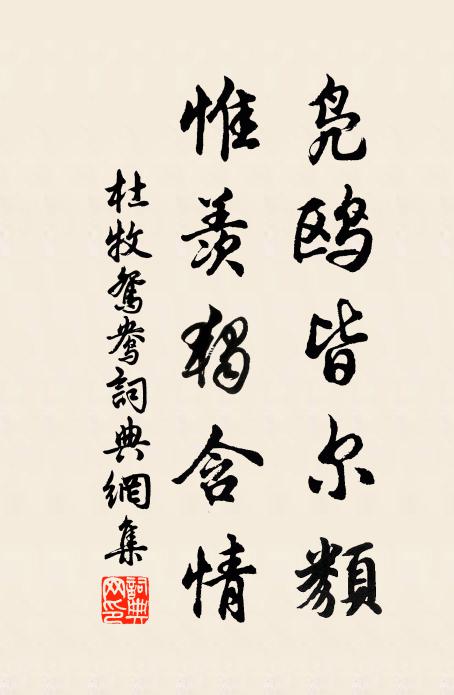 凫鸥皆尔類
惟羨獨含情
杜牧鴛鴦詞典網集
詞典
网印